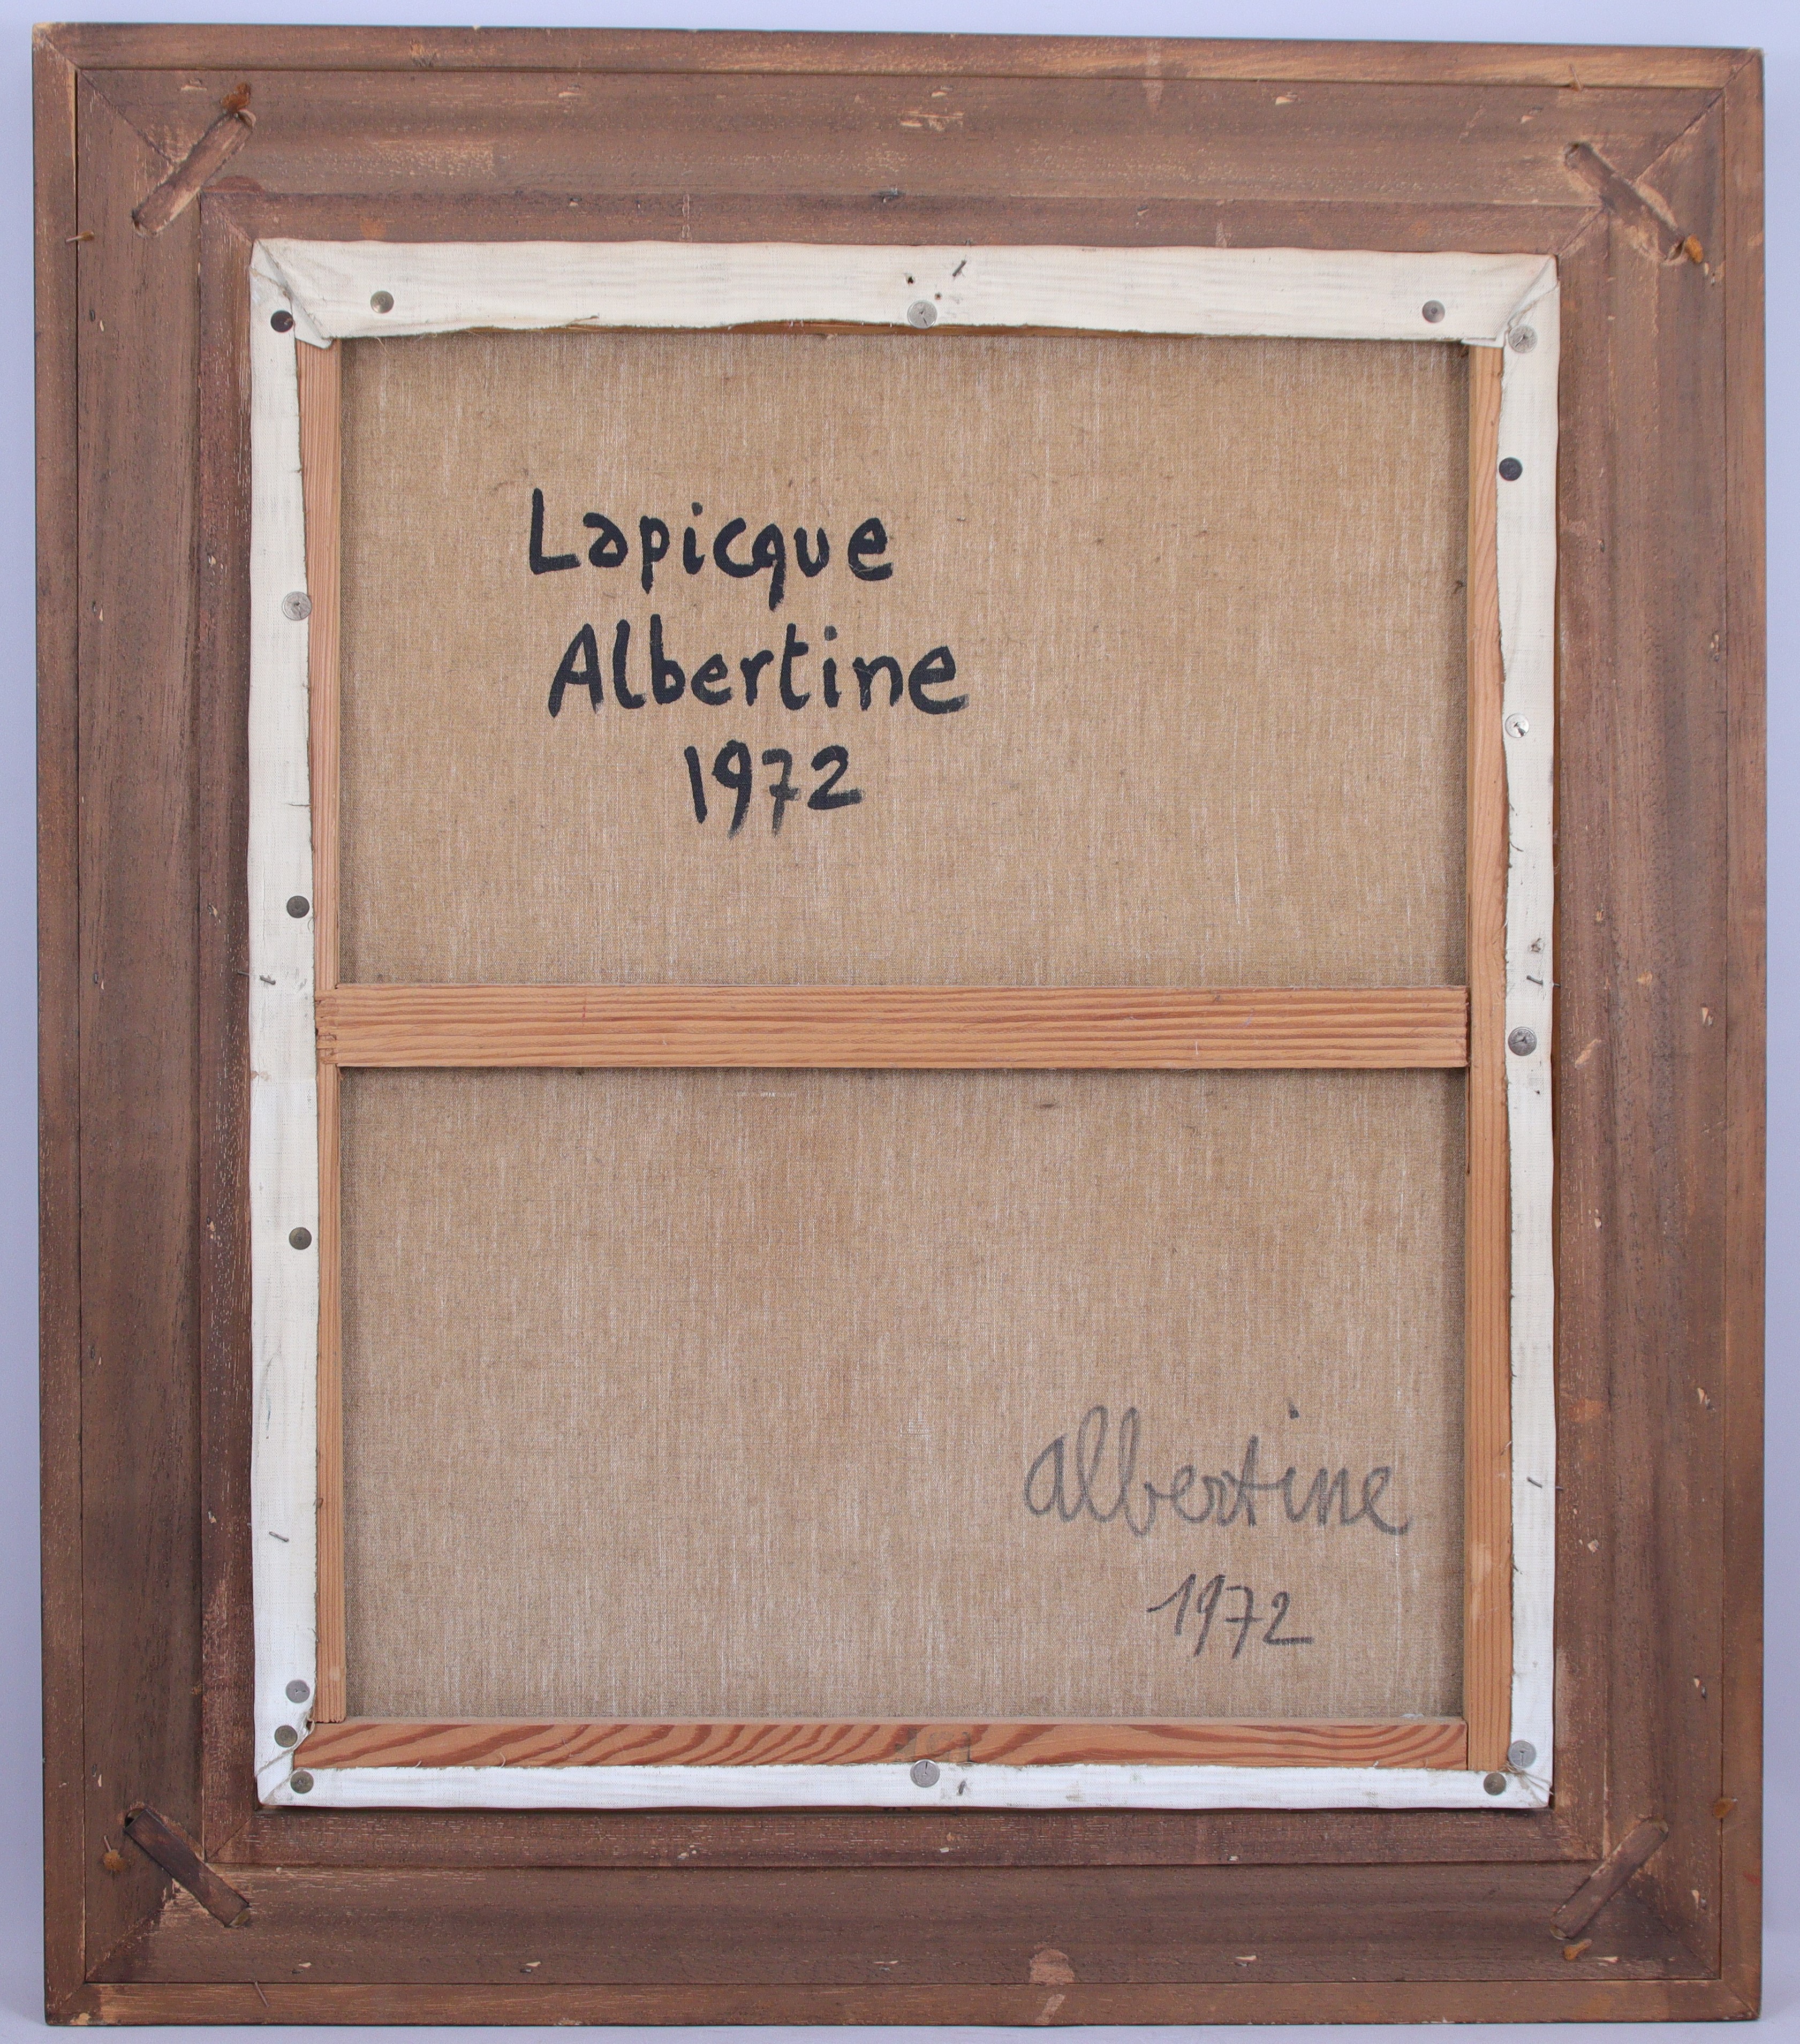 Lapicque
Albertine
1972
albertine
1972